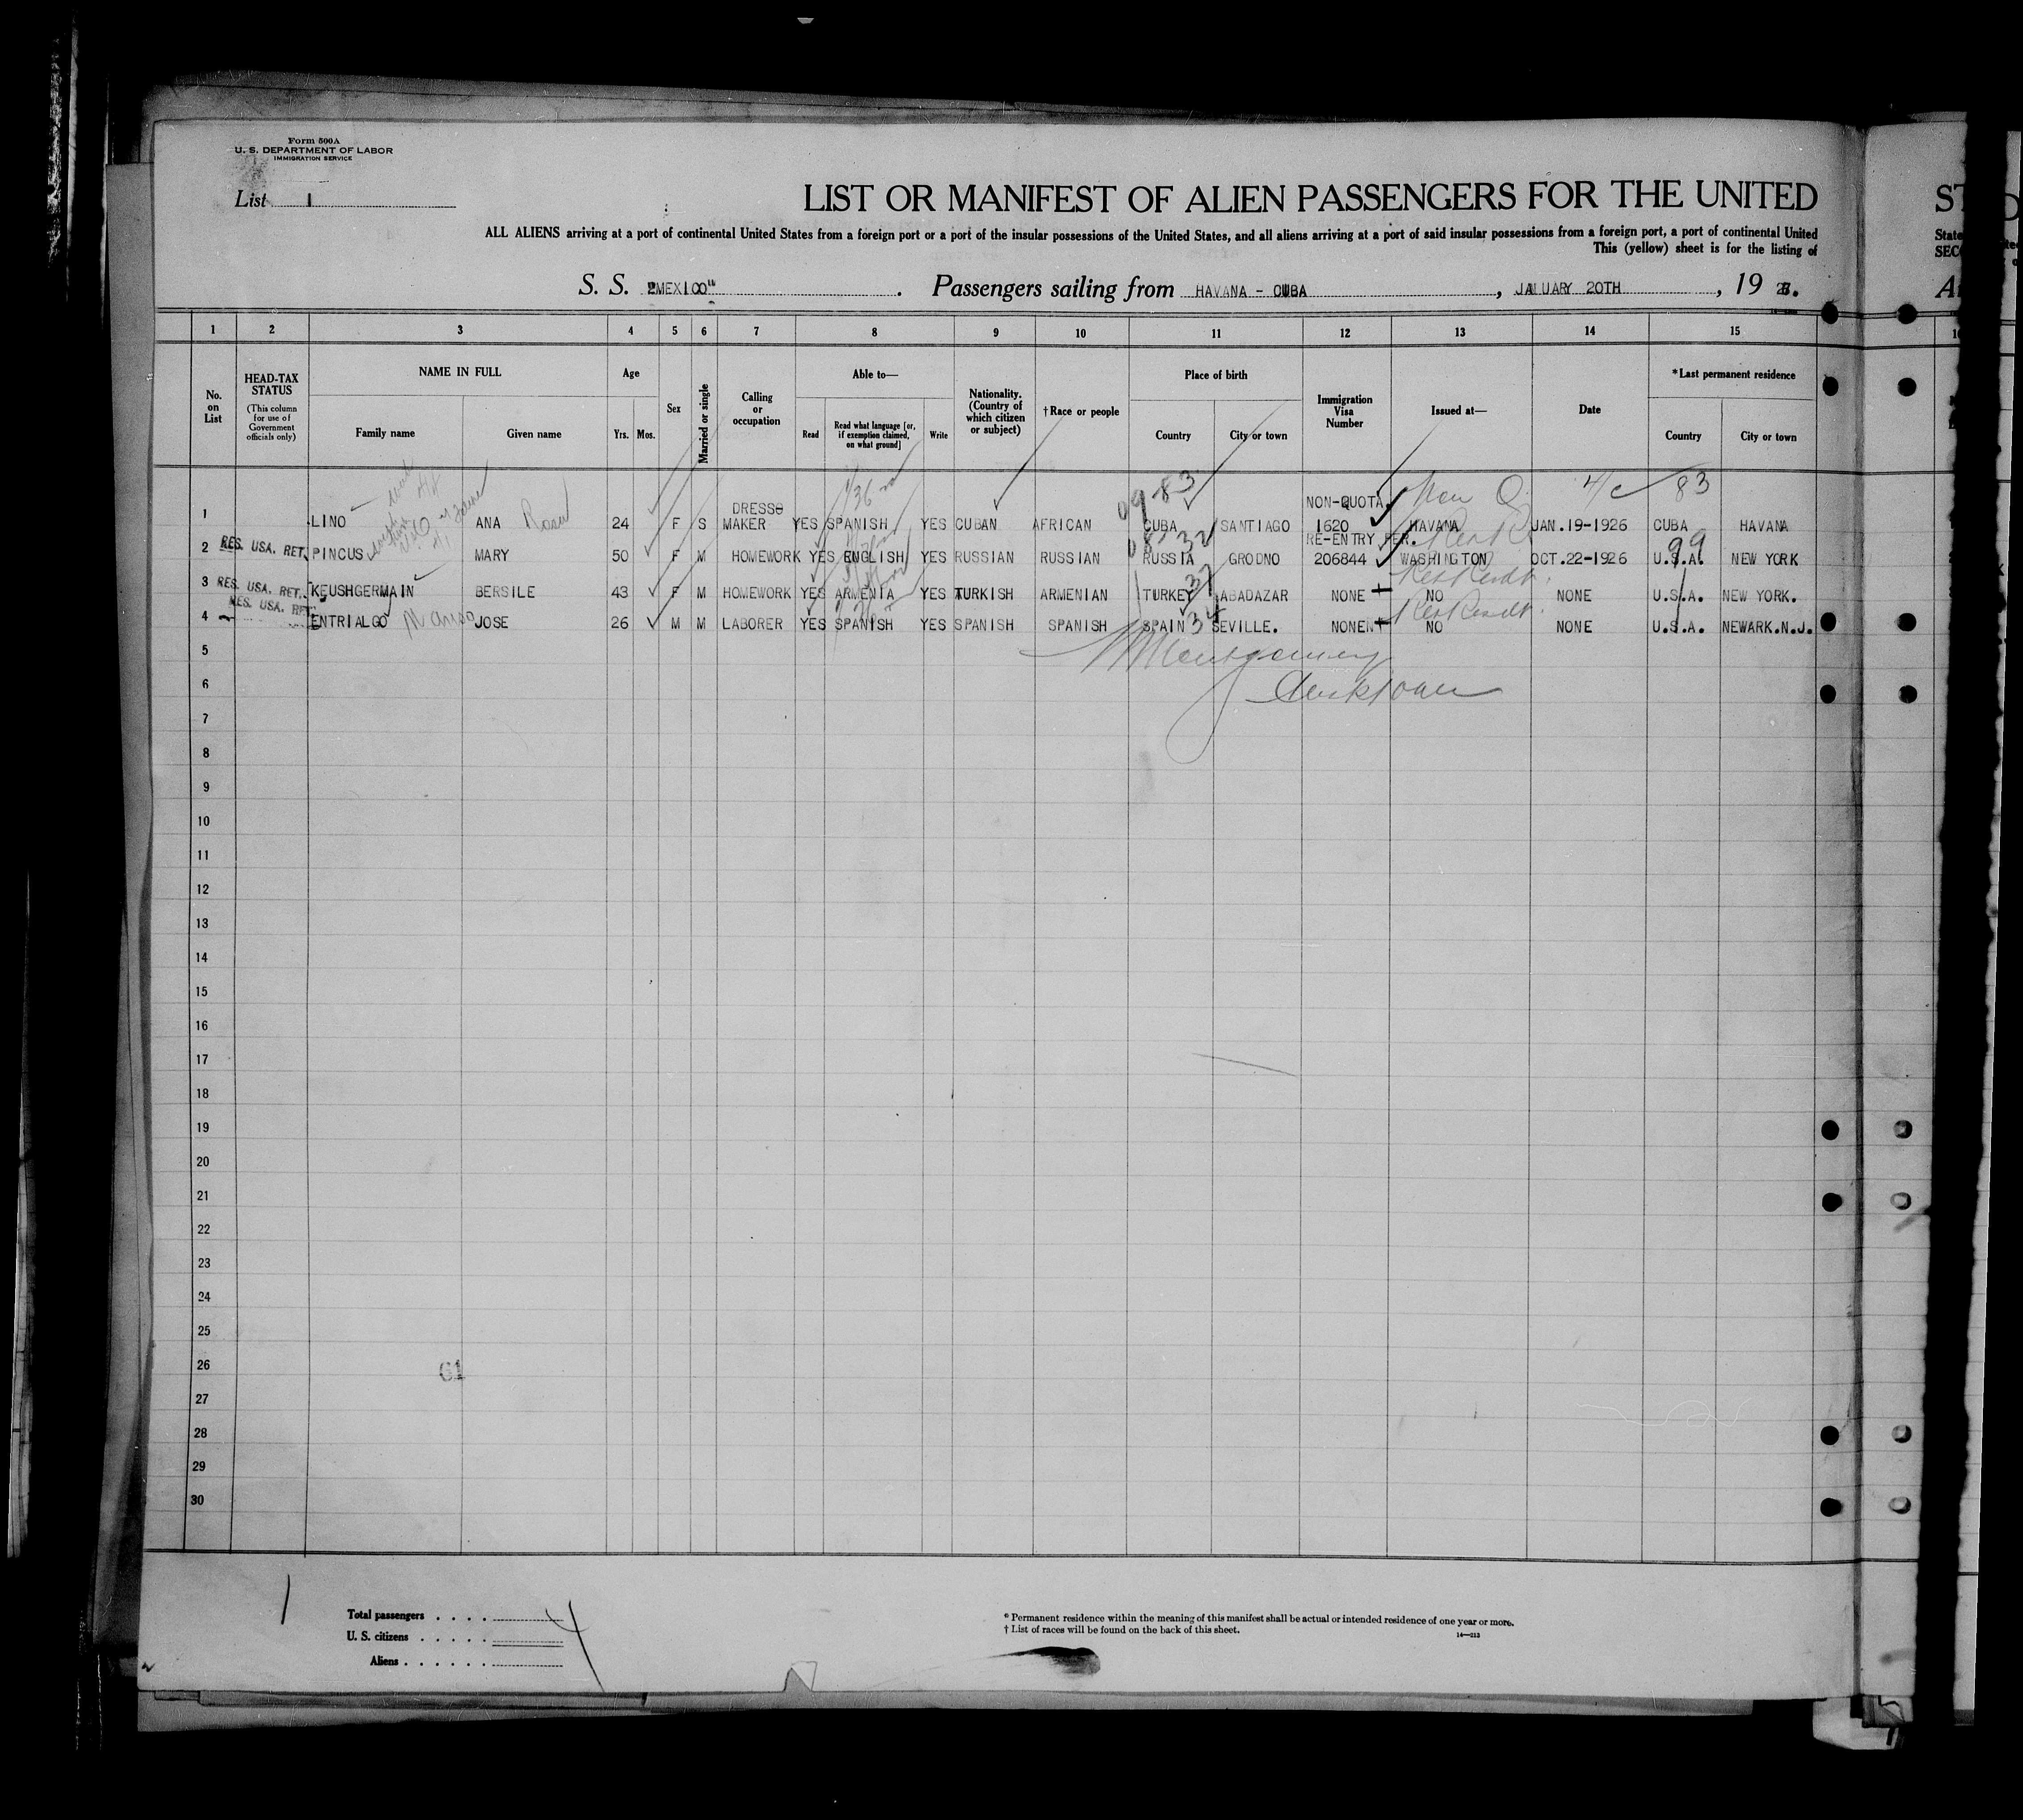 Form 500A
U. S. DEPARTMENT OF LABOR
IMMIGRATION SERVICE
List 1
LIST OR MANIFEST OF ALIEN PASSENGERS FOR THE UNITED
ALL ALIENS arriving at a port of continental United States from a foreign port or a port of the insular possessions of the United States, and all aliens arriving at a port of said insular possessions from a foreign port, a port of continental United
This (yellow) sheet is for the listing of
S. S. "MEXICO" . Passengers sailing from HAVANA - CUBA , JANUARY 20TH , 19
1 2 3 4 5 6 7 8 9 10 11 12 13 14 15
No. on List
HEAD-TAX STATUS (This column for use of Government officials only)
NAME IN FULL
Family name
Given name
Age
Yrs. Mos.
Sex
Married or single
Calling or occupation
Able to—
Read
Read what language [or, if exemption claimed, on what ground]
Write
Nationality. (Country of which citizen or subject)
†Race or people
Place of birth
Country
City or town
Immigration Visa Number
Issued at—
Date
*Last permanent residence
Country
City or town
1 LINO ANA Rosa 24 F S DRESS MAKER YES SPANISH YES CUBAN AFRICAN CUBA SANTIAGO NON-QUOTA 1620 HAVANA JAN.19-1926 CUBA HAVANA
2 RES. USA. RET. PINCUS MARY 50 F M HOMEWORK YES ENGLISH YES RUSSIAN RUSSIAN RUSSIA GRODNO RE-ENTRY PER. 206844 WASHINGTON OCT.22-1926 U.S.A. NEW YORK
3 RES. USA. RET. KEUSHGERMAIN BERSILE 43 F M HOMEWORK YES ARMENIA YES TURKISH ARMENIAN TURKEY ABADAZAR NONE NO NONE U.S.A. NEW YORK.
4 RES. USA. RET. ENTRIALGO JOSE 26 M M LABORER YES SPANISH YES SPANISH SPANISH SPAIN SEVILLE. NONE NO NONE U.S.A. NEWARK.N.J.
5
6
7
8
9
10
11
12
13
14
15
16
17
18
19
20
21
22
23
24
25
26
27
28
29
30
61
1
Total passengers . . . .
U. S. citizens . . . . .
Aliens . . . . . .
4
* Permanent residence within the meaning of this manifest shall be actual or intended residence of one year or more.
† List of races will be found on the back of this sheet.
14—213